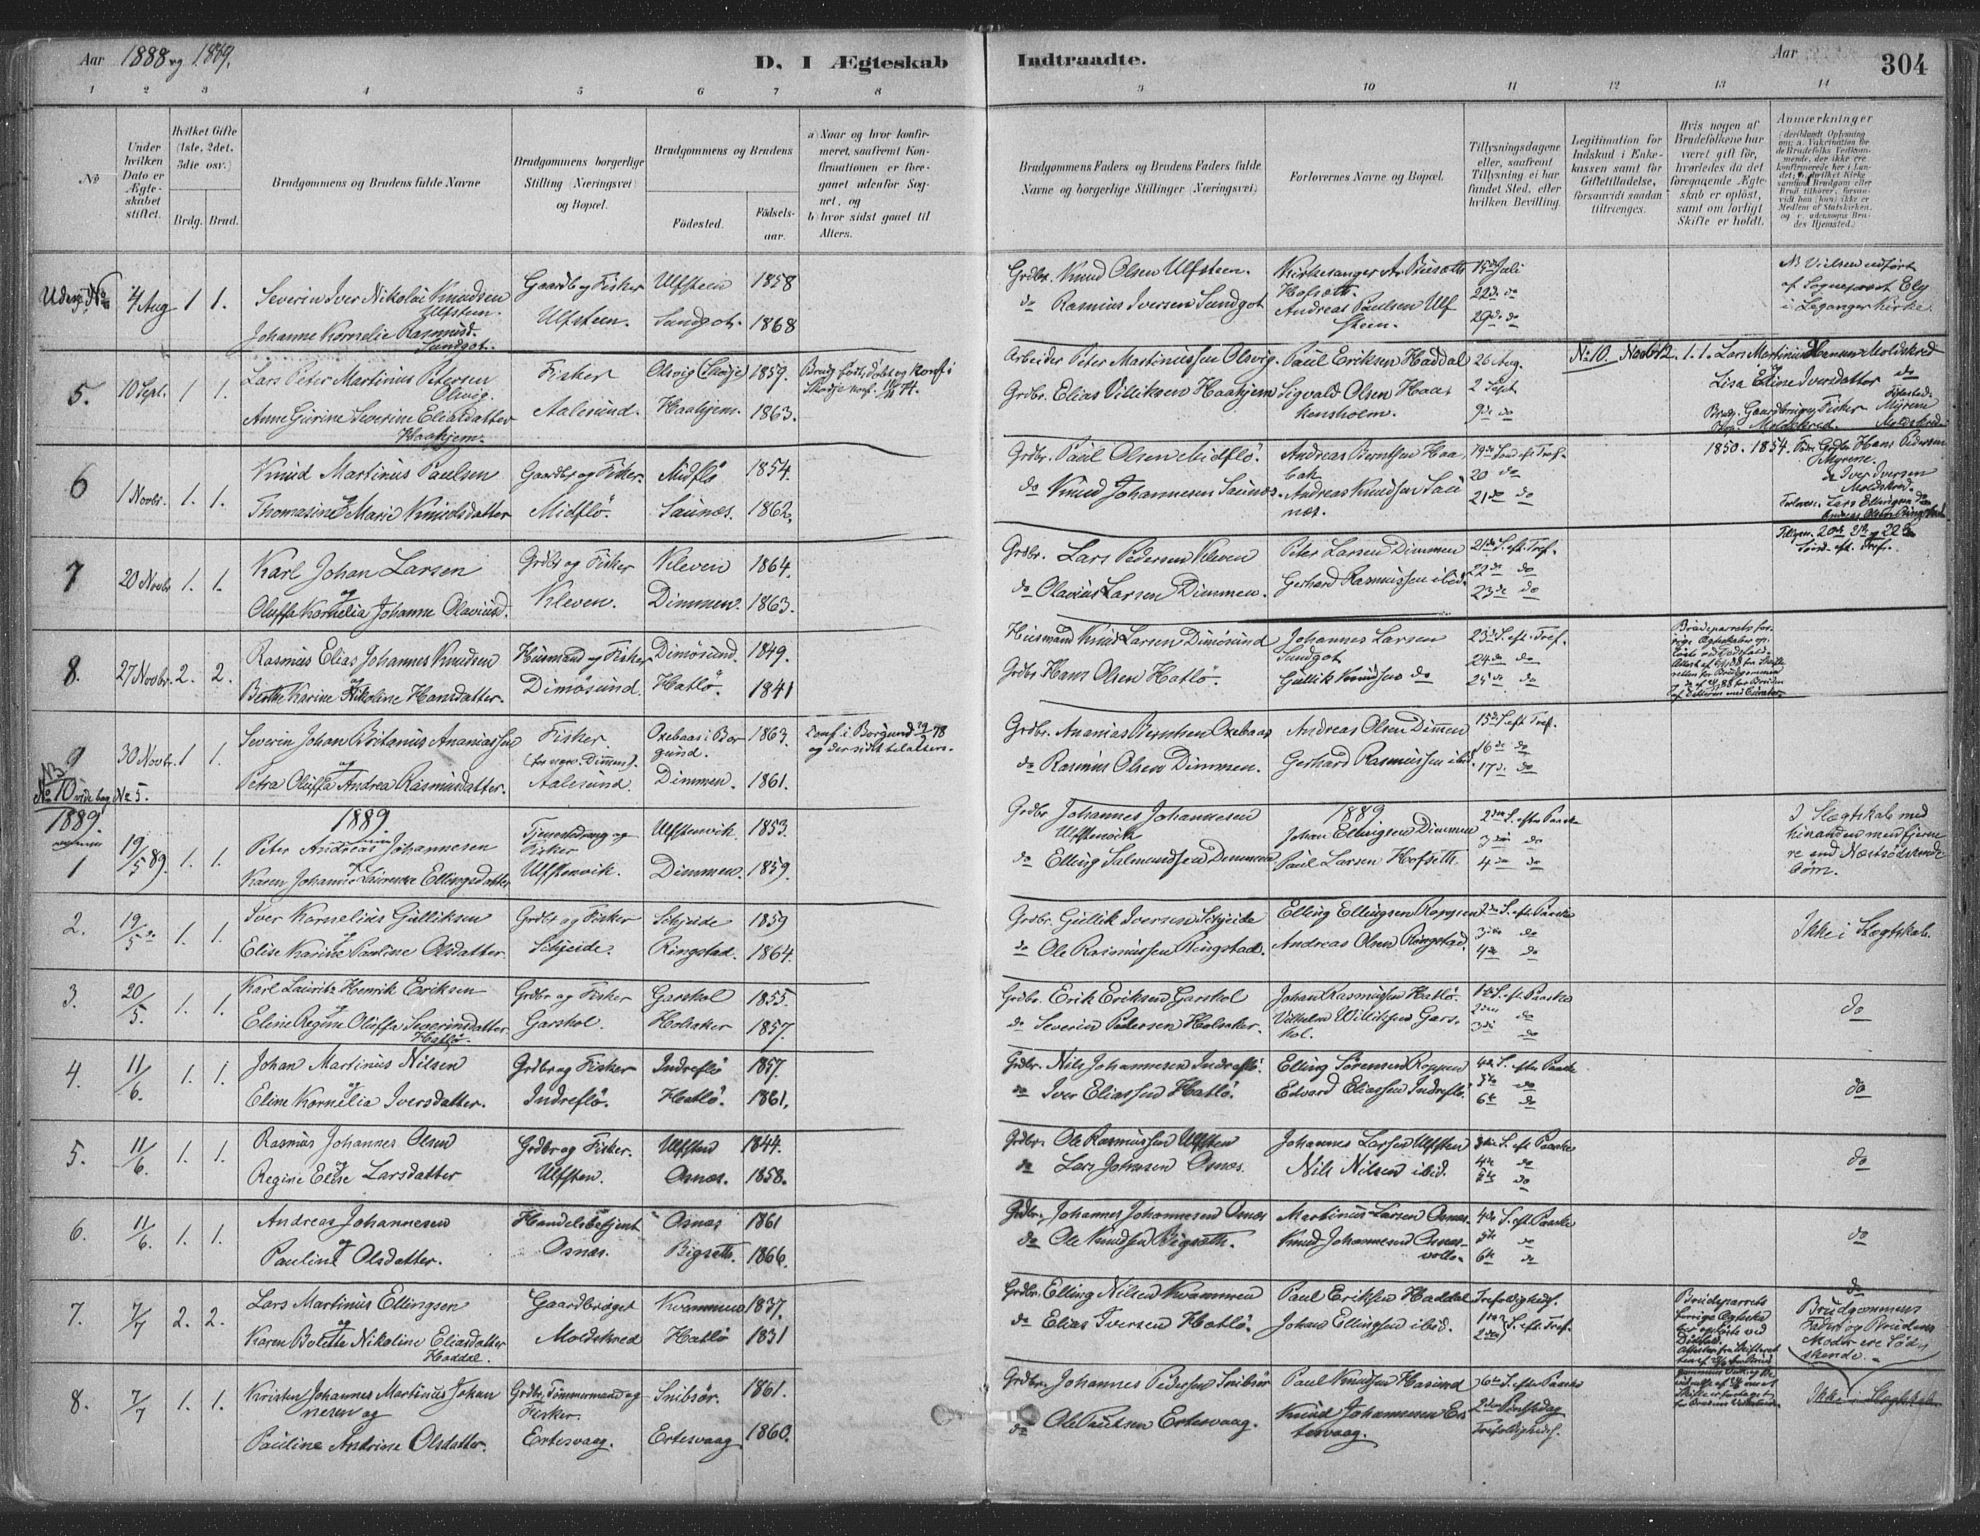 Aar 1888 og 1889.
D. I Ægteskab
Indtraadte.
Aar
304
1 2 3 4 5 6 7 8 9 10 11 12 13 14
No
Under hvilken Dato er Ægteskabet stiftet.
Hvilket Gifte (1ste, 2det, 3die osv.)
Brdg. Brud.
Brudgommens og Brudens fulde Navne
Brudgommens borgerlige Stilling (Næringsvei) og Bopæl.
Brudgommens og Brudens
Fødested.
Fødselsaar.
a) Naar og hvor konfirmeret, saafremt Konfirmationen er foregaaet udenfor Sognet, og
b) hvor sidst gaaet til Alters.
Brudgommens Faders og Brudens Faders fulde Navne og borgerlige Stillinger (Næringsvei).
Forlovernes Navne og Bopæl.
Tillysningsdagene eller, saafremt Tillysning ei har fundet Sted, efter hvilken Bevilling.
Legitimation for Indskud i Enkekassen samt for Giftetilladelse, forsaavidt saadan tiltrænges.
Hvis nogen af Brudefolkene har været gift før, hvorledes da det foregaaende Ægteskab er opløst, samt om lovligt Skifte er holdt.
Anmærkninger
4 Aug 1 1.
Severin Iver Nikolai Knudsen Ulfsteen.
Johanne Kornelie Rasmusd. Sundgot.
Gaardb og Fisker
Ulfsteen.
Ulfstein 1858
Sundgot. 1868
Grdbr. Knud Olsen Ulfsteen.
do Rasmus Iversen Sundgot
Kirkesanger
Hofsøth.
Andreas Paulsen Ulfsteen.
15de Juli
22de do
29de do
Vielsen udført af Sognepræst i Leganger Kirke.
5. 10 Sept. 1. 1.
Lars Peter Martinus Petersen Olsvig.
Anne Gurine Severine Eliasdatter Haahjem.
Fisker
Aalesund.
Olsvig (Skodje) 1859.
Haahjem. 1863.
Arbeider Peter Martinussen Olsvig.
Grdbr. Elias Villiksen Haahjem
Paul Eriksen Haddal
Sigvald Olsen Haakensholm.
26 Aug.
2 Sept
9de do
No 10. Novbr 12. 1. 1. Lars Martinus Hansen Moldskred
Lisa Eline Iversdatter do
Gaardbruger Fisker Myrene
Moldskred. Moldskred
6 1 Novbr. 1. 1.
Knud Martinus Paulsen
og
Thomasine Marie Knudsdatter
Gaardbr og Fisker.
Midflø.
Midflø 1854.
Saunæs. 1862.
Grdbr. Paul Olsen Midflø.
do Knud Johannesen Saunæs.
Andreas Berntsen Haabak
Andreas Knudsen Saunæs.
19de Sønd eft Tref.
20 do
21de do
1850. 1854. Hans Pedersen Myrene.
Iver Iversen Moldskred.
Lars Ellingsen
Andreas Olsen Ringstad
7 20 Novbr 1. 1.
Karl Johan Larsen
og
Oluffa Kornelia Johanne Olaviusd.
Grdbr og Fisker
Kleven.
Kleven 1864.
Dimmen. 1863.
Grdbr. Lars Pedersen Kleven
do Olavius Larsen Dimmen.
Peter Larsen Dimmen
Gerhard Rasmussen ibid.
21de S. eft. Tref.
22de do
23de do
8. 27 Novbr. 2. 2.
Rasmus Elias Johannes Knudsen
og
Berthe Karine Nikoline Hansdatter.
Husmand og Fisker
Dimøsund.
Dimøsund. 1849.
Hatlø. 1841
Husmand Knud Larsen Dimøsund
Grdbr Hans Olsen Hatlø.
Johannes Larsen Sundgot
Gullik Knudsen do
23de S. eft. Tref.
24de do
25de do
9 30 Novbr. 1 1.
Severin Johan Britanus Ananiassen
og
Petra Oluffa Andrea Rasmusdatter.
Fisker
Aalesund.
Oxebaas i Borgund. 1863.
Dimmen. 1861.
Konf. i Borgund
og der sidst til alters.
Grdbr. Ananias Berntsen Oxebaas
do Rasmus Olsen Dimmen.
Andreas Olsen Dimmen
Gerhard Rasmussen ibid.
15de S. eft Tref.
16de do
17de do
No 10 vide bag No 5.
1889. 1889 1889
1 19/5 89. 1. 1.
Peter Andreas Johannesen
og
Karen Johanne Laurense Ellingsdatter
Tjenestedreng og Fisker
Ulfstenvik.
Ulfstenvik 1853.
Dimmen. 1859.
Grdbr Johannes Johannesen Ulfstenvik
do Elling Salmundsen Dimmen
Johan Ellingsen Dimmen
Paul Larsen Hofseth.
2den S. efter Paaske
3die do
4de do
I Slægtskab med hinanden men fjernere end Næstsødskendebørn.
2. 19/5 1. 1.
Iver Kornelius Gulliksen
og
Elise Karine Pauline Olsdatter.
Grdbr og Fisker
Skjeide.
Skjeide 1859
Ringstad. 1864.
Grdbr. Gullik Iversen Skjeide
do Ole Rasmussen Ringstad.
Elling Ellingsen Roppen
Andreas Olsen Ringstad.
2den S. eft Paaske
3die do
4de do
Ikke i Slægtskab.
3. 20/5. 1. 1.
Karl Lauritz Henrik Eriksen
og
Eline Regine Oluffa Severinsdatter Hatlø.
Grdbr og Fisker
Garshol.
Garshol 1855.
Holsaker 1857.
Grdbr. Erik Eriksen Garshol
do Severin Pedersen Holsaker.
Johan Rasmussen Hatlø.
Vilhelm Williksen Garshol.
1ste S. eft. Paaske
2den do
3die do
do
4. 11/6. 1. 1.
Johan Martinus Nilsen
og
Eline Kornelia Iversdatter.
Grdbr og Fisker
Indreflø.
Indreflø 1857.
Hatlø. 1861.
Grdbr. Nils Johannesen Indreflø.
do Iver Eliassen Hatlø.
Elling Sørensen Roppen
Edvard Eliassen Indreflø.
4de S. efter Paaske
5te do
6te do
do
5. 11/6. 1. 1.
Rasmus Johannes Olsen
og
Regine Elise Larsdatter
Grdbr og Fisker.
Ulfsten.
Ulfsten 1844.
Osnæs. 1858.
Grdbr. Ole Rasmussen Ulfsten
do Lars Johnsen Osnæs.
Johannes Larsen Ulfsten
Nils Nilsen ibid.
3die S. eft Paaske
4de do
5te do
do
6. 11/6. 1. 1.
Andreas Johannesen
og
Pauline Olsdatter.
Handelsbetjent
Osnæs.
Osnæs 1861
Bigseth. 1866.
Grdbr. Johannes Johannesen Osnæs
do Ole Knudsen Bigseth.
Martinus Larsen Osnæs.
Knud Johannesen Osnæsvolle.
4de S. eft Paaske
5te do
6te do
do
7. 7/7 2. 2.
Lars Martinus Ellingsen
og
Karen Bolette Nikoline Eliasdatter Haddal.
Gaardbruger
Moldskred
Kvammen 1837.
Hatlø 1831
Grdbr. Elling Nilsen Kvammen
do Elias Iversen Hatlø.
Paul Eriksen Haddal
Johan Ellingsen ibid.
Trefoldighedsf.
1ste S. eft. Tref.
2den
do
Brudgommens Fader og Brudens Moder ere Sødskende.
8. 7/7 1. 1.
Kristen Johannes Martinus Johannesen og
Pauline Antrine Olsdatter.
Grdbr, Tømmermand og Fisker.
Ertesvaag.
Snibsør. 1861.
Ertesvaag 1860.
Grdbr. Johannes Pedersen Snibsør
do Ole Paulsen Ertesvaag.
Paul Knudsen Hasund
Knud Johannesen Ertesvaag.
6te S. efter Paaske
2den Pintsedag
Trefoldighedsf.
Ikke i Slægtskab.